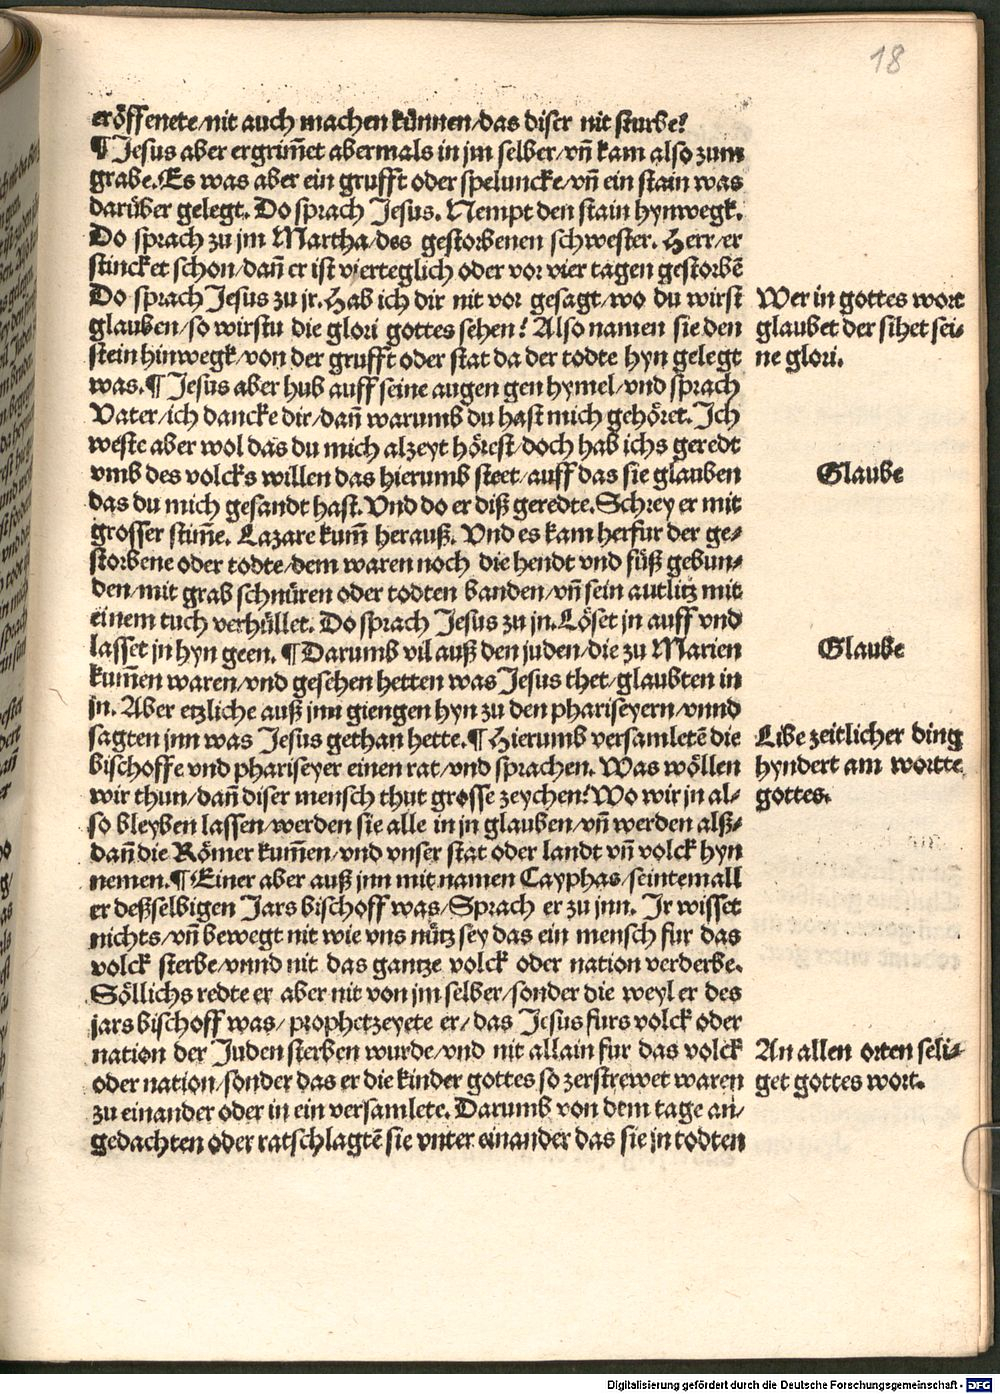 18
eröffenete/nit auch machen künnen/das diser nit sturbe?
¶ Jesus aber ergrim̃et abermals in jm selber/vn̄ kam also zum
grabe. Es was aber ein grufft oder speluncke/vn̄ ein stain was
darüber gelegt. Do sprach Jesus. Nempt den stain hynwegk.
Do sprach zu jm Martha/des gestorbenen schwester. Herr/er
stincket schon/dan̄ er ist vierteglich oder vor vier tagen gestorbē
Do sprach Jesus zu jr. Hab ich dir nit vor gesagt/wo du wirst
glauben/so wirstu die glori gottes sehen? Also namen sie den
stein hinwegk/von der grufft oder stat da der todte hyn gelegt
was. ¶ Jesus aber hub auff seine augen gen hymel/vnd sprach
Vater/ich dancke dir/dan̄ warumb du hast mich gehöret. Ich
weste aber wol das du mich alzeyt hörest/doch hab ichs geredt
vmb des volcks willen das hierumb steet/auff das sie glauben
das du mich gesandt hast. Vnd do er diß geredte. Schrey er mit
grosser stim̃e. Lazare kum̃ herauß. Vnd es kam herfur der ge⸗
storbene oder todte/dem waren noch die hendt vnd füß gebun⸗
den/mit grab schnüren oder todten banden/vn̄ sein autlitz mit
einem tuch verhüllet. Do sprach Jesus zu jn. Löset jn auff vnd
lasset jn hyn geen. ¶ Darumb vil auß den juden/die zu Marien
kum̃en waren/vnd gesehen hetten was Jesus thet/glaubten in
jn. Aber etzliche auß jnn giengen hyn zu den phariseyern/vnnd
sagten jnn was Jesus gethan hette. ¶ Hierumb versamletē die
bischoffe vnd phariseyer einen rat/vnd sprachen. Was wöllen
wir thun/dan̄ diser mensch thut grosse zeychen? Wo wir jn al⸗
so bleyben lassen/werden sie alle in jn glauben/vn̄ werden alß⸗
dan̄ die Römer kum̃en/vnd vnser stat oder landt vn̄ volck hyn
nemen. ¶ Einer aber auß jnn mit namen Cayphas/seintemall
er deßselbigen Jars bischoff was/Sprach er zu jnn. Jr wisset
nichts/vn̄ bewegt nit wie vns nütz sey das ein mensch fur das
volck sterbe/vnnd nit das gantze volck oder nation verderbe.
Söllichs redte er aber nit von jm selber/sonder die weyl er des
jars bischoff was/prophetzeyete er/das Jesus furs volck oder
nation der Juden sterben wurde/vnd nit allain fur das volck
oder nation/sonder das er die kinder gottes so zerstrewet waren
zu einander oder in ein versamlete. Darumb von dem tage an/
gedachten oder ratschlagtē sie vnter einander das sie jn todten
Wer in gottes wort
glaubet der sihet sei⸗
ne glori.
Glaube
Glaube
Libe zeitlicher ding
hyndert am wortte
gottes.
An allen orten seli⸗
get gottes wort.
Digitalisierung gefördert durch die Deutsche Forschungsgemeinschaft - DFG